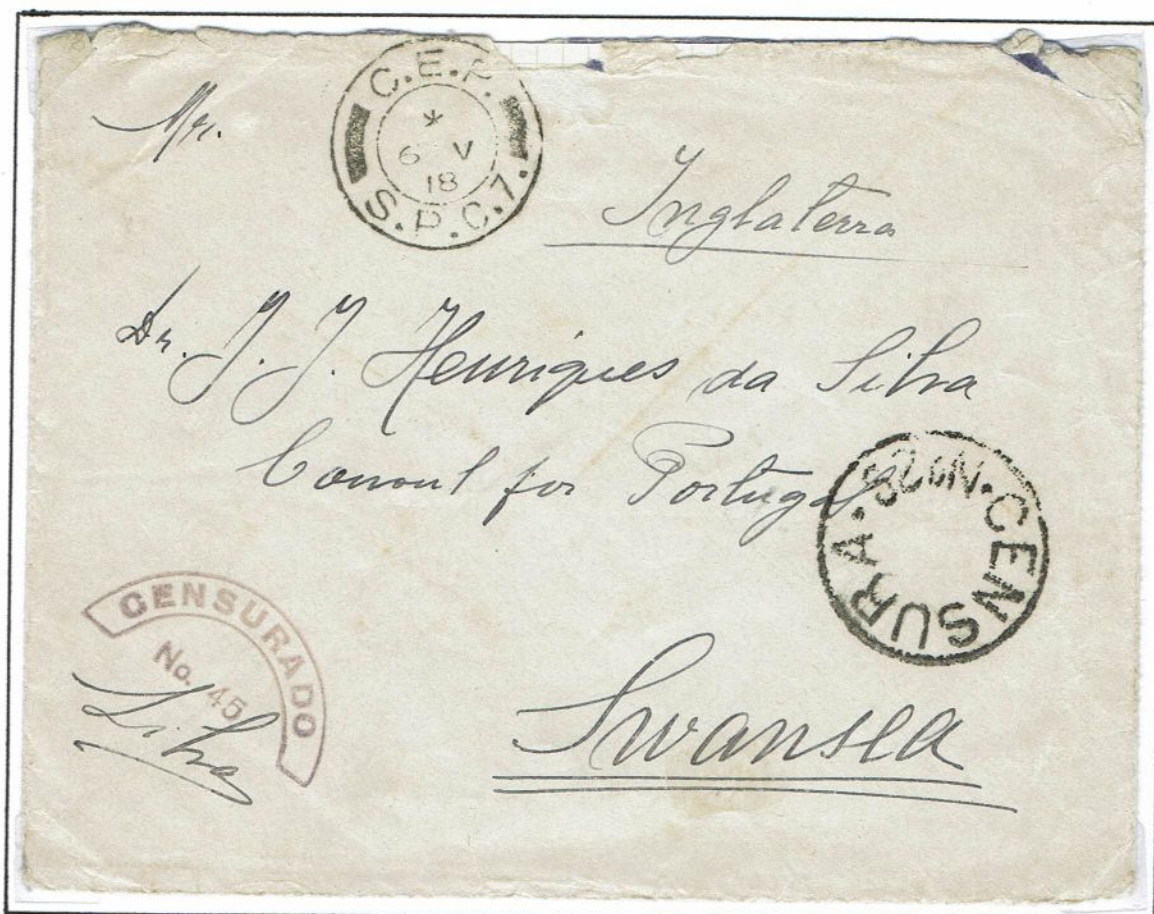 Mr.
C.E.P.
*
6 V
18
S.P.C.7.
Inglaterra
Dr. J. J. Henriques da Silva
Consul for Portugal
CENSURA · Nº 28 ·
CENSURADO
No. 45
Silva
Swansea